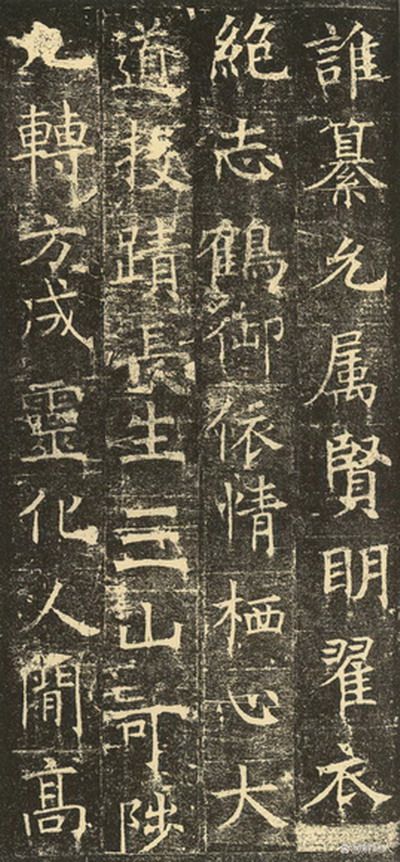 誰纂允属賢明翟衣
絶志鶴御依情栖心大
道投蹟長生三山可陟
九轉方成靈化人間高